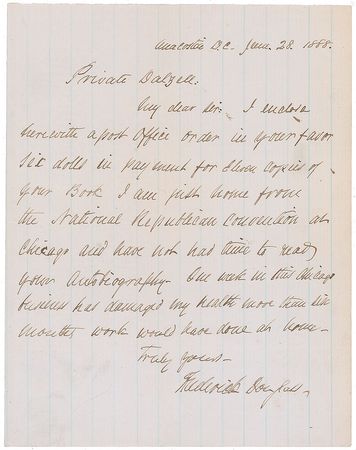 Anacostia D.C. June. 28. 1888.
Private Dalzell:
My dear Sir: I enclose
herewith a post Office order in your favor
six dolls in payment for Eleven copies of
your Book. I am just home from
the National Republican Convention at
Chicago and have not had time to read
your Autobiography. One week in this Chicago
business has damaged my health more than six
months work would have done at home—
Truly yours—
Frederick Douglass—